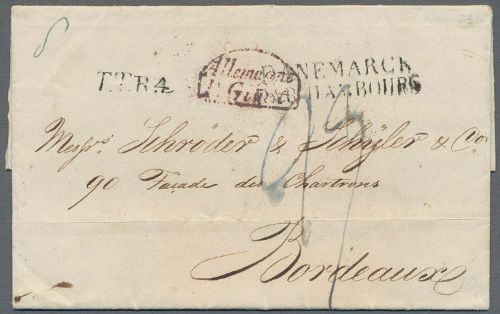 T.T.R.4.
Allemagne
DANEMARCK
PAR HAMBOURG
Messrs. Schröder & Schÿler & Co.
90 Façade des Chartrons
Bordeaux